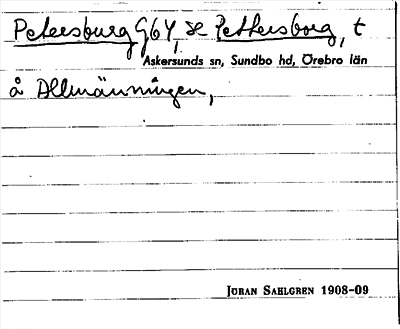 Petersburg G64, se Pettersborg, t
Askersunds sn, Sundbo hd, Örebro län
å Allmänningen,
JÖRAN SAHLGREN 1908-09